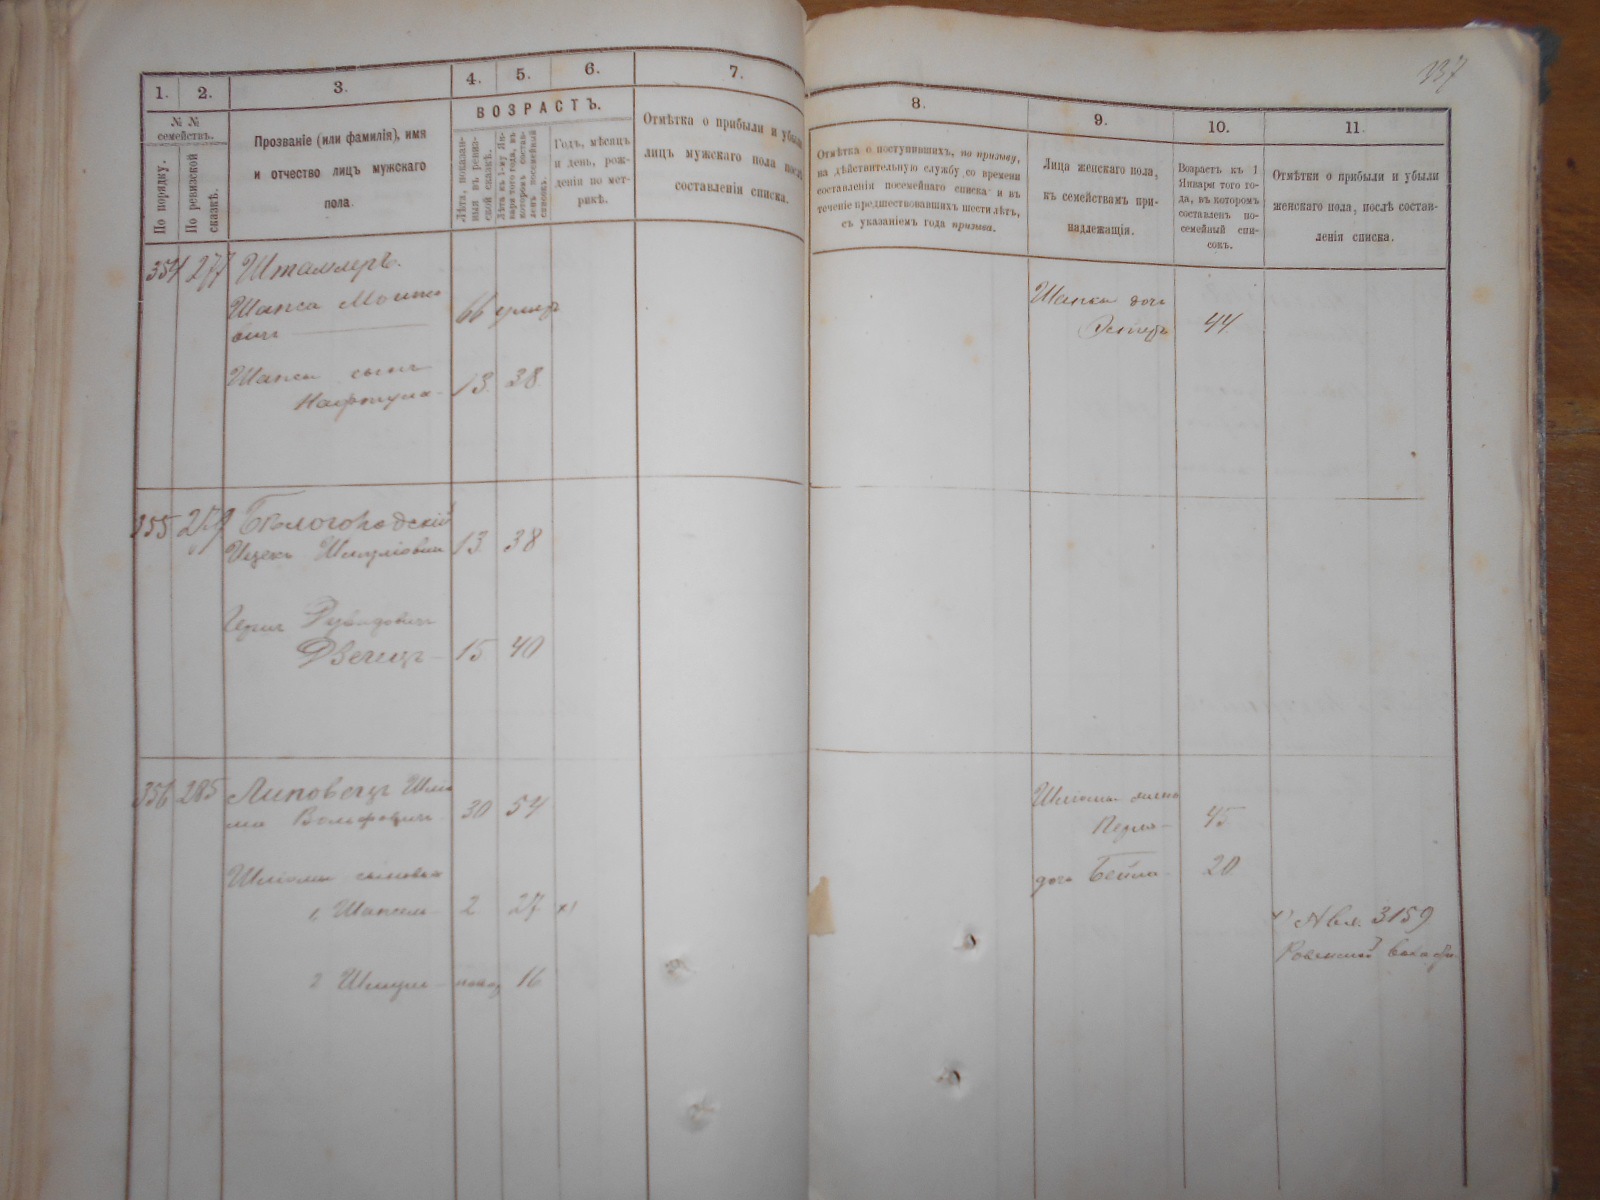 137
1. 2. 3. 4. 5. 6. 7. 8. 9. 10. 11
№ №
семействъ.
По порядку.
По ревизской
сказкѣ.
Прозваніе (или фамилія), имя
и отчество лицъ мужскаго
пола.
ВОЗРАСТЪ.
Лѣта, показан-
ныя въ ревиз-
ской сказкѣ.
Лѣта къ 1-му Ян-
варя того года, въ
которомъ состав-
ленъ посемейный
списокъ.
Годъ, мѣсяцъ
и день, рож-
денія по мет-
рикѣ.
Отмѣтка о прибыли и убыли
лицъ мужскаго пола послѣ
составленія списка.
Отмѣтка о поступившихъ, по призыву,
на дѣйствительную службу со времени
составленія посемейнаго списка и въ
теченіе предшествовавшихъ шести лѣтъ,
съ указаніемъ года призыва.
Лица женскаго пола,
къ семействамъ при-
надлежащія.
Возрастъ къ 1
Января того го-
да, въ которомъ
составленъ по-
семейный спи-
сокъ.
Отмѣтки о прибыли и убыли
женскаго пола, послѣ состав-
ленія списка.
354 277 Штаммеръ.
Шапса Мошко
вич 66 умер
Шапси дочь
Эстеръ 44
Шапси сынъ
Нафтула 13 38
355 279 Бѣлогородскій
Ицекъ Шмулiовичъ 13 38
Рувидовичъ
15 40
356 285 Липовецъ Шлио
ма Вольфовичъ 30 54
Шліомы жена
Перля 45
дочь Бейла 20
Шліомы сыновья
1, Шапсель 2 27 х)
2 Шмуль 16
х) Явл. 3159
Ровенской